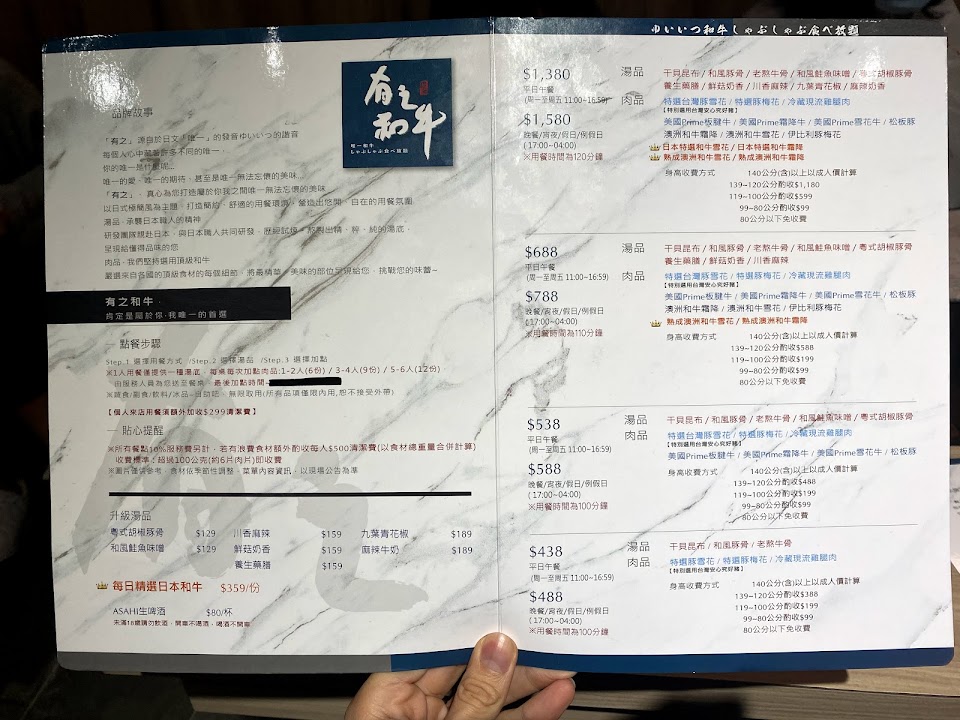 ゆいいつ和牛しゃぶしゃぶ食べ放題
有之和牛
唯一和牛
しゃぶしゃぶ食べ放題
品牌故事
「有之」 源自於日文「唯一」的發音ゆいいつ的諧音
每個人心中藏著許多不同的唯一.
你的唯一是什麼呢...
唯一的愛、唯一的期待、甚至是唯一無法忘懷的美味...
「有之」, 真心為您打造屬於你我之間唯一無法忘懷的美味
以日式極簡風為主題, 打造簡約、舒適的用餐環境, 營造出悠閒、自在的用餐氛圍
湯品, 承襲日本職人的精神
研發團隊親赴日本, 與日本職人共同研發, 歷經試煉, 熬製出精、粹、純的湯底,
呈現給懂得品味的您
肉品, 我們堅持選用頂級和牛
嚴選來自各國的頂級食材的每個細節, 將最精華、美味的部位呈現給您, 挑戰您的味蕾~
有之和牛.
肯定是屬於你.我唯一的首選
點餐步驟
Step.1 選擇用餐方式 /Step.2 選擇湯品 /Step.3 選擇加點
※1人用餐僅提供一種湯底, 每桌每次加點肉品:1-2人(6份) / 3-4人(9份) / 5-6人(12份)
由服務人員為您送至餐桌, 最後加點時間
※蔬食/副食/飲料/冰品-自助吧, 無限取用(所有品項僅限內用,恕不接受外帶)
【個人來店用餐須額外加收$299清潔費】
貼心提醒
※所有餐點10%服務費另計, 若有浪費食材額外酌收每人$500清潔費(以食材總重量合併計算)
收費標準: 超過100公克(約6片肉片)即收費
※圖片僅供參考, 食材依季節性調整, 菜單內容資訊, 以現場公告為準
升級湯品
粵式胡椒豚骨 $129 川香麻辣 $159 九葉青花椒 $189
和風鮭魚味噌 $129 鮮菇奶香 $159 麻辣牛奶 $189
養生藥膳 $159
每日精選日本和牛 $359/份
ASAHI生啤酒 $80/杯
未滿18歲請勿飲酒, 開車不喝酒, 喝酒不開車
$1,380
平日午餐
(周一至周五 11:00~16:59)
$1,580
晚餐/宵夜/假日/例假日
( 17:00~04:00)
※用餐時間為120分鐘
湯品 干貝昆布 / 和風豚骨 / 老熬牛骨 / 和風鮭魚味噌 / 粵式胡椒豚骨
養生藥膳 / 鮮菇奶香 / 川香麻辣 / 九葉青花椒 / 麻辣奶香
肉品 特選台灣豚雪花 / 特選豚梅花 / 冷藏現流雞腿肉
【特別選用台灣安心究好豬】
美國Prime板腱牛 / 美國Prime霜降牛 / 美國Prime雪花牛 / 松板豚
澳洲和牛霜降 / 澳洲和牛雪花 / 伊比利豚梅花
日本特選和牛雪花 / 日本特選和牛霜降
熟成澳洲和牛雪花 / 熟成澳洲和牛霜降
身高收費方式 140公分(含)以上以成人價計算
139~120公分酌收$1,180
119~100公分酌收$599
99~80公分酌收$99
80公分以下免收費
$688
平日午餐
(周一至周五 11:00~16:59)
$788
晚餐/宵夜/假日/例假日
( 17:00~04:00)
※用餐時間為110分鐘
湯品 干貝昆布 / 和風豚骨 / 老熬牛骨 / 和風鮭魚味噌 / 粵式胡椒豚骨
養生藥膳 / 鮮菇奶香 / 川香麻辣
肉品 特選台灣豚雪花 / 特選豚梅花 / 冷藏現流雞腿肉
【特別選用台灣安心究好豬】
美國Prime板腱牛 / 美國Prime霜降牛 / 美國Prime雪花牛 / 松板豚
澳洲和牛霜降 / 澳洲和牛雪花 / 伊比利豚梅花
熟成澳洲和牛雪花 / 熟成澳洲和牛霜降
身高收費方式 140公分(含)以上以成人價計算
139~120公分酌收$588
119~100公分酌收$199
99~80公分酌收$99
80公分以下免收費
$538
平日午餐
(周一至周五 11:00~16:59)
$588
晚餐/宵夜/假日/例假日
( 17:00~04:00)
※用餐時間為100分鐘
湯品 干貝昆布 / 和風豚骨 / 老熬牛骨 / 和風鮭魚味噌 / 粵式胡椒豚骨
肉品 特選台灣豚雪花 / 特選豚梅花 / 冷藏現流雞腿肉
【特別選用台灣安心究好豬】
美國Prime板腱牛 / 美國Prime霜降牛 / 美國Prime雪花牛 / 松板豚
身高收費方式 140公分(含)以上以成人價計算
139~120公分酌收$488
119~100公分酌收$199
99~80公分酌收$99
80公分以下免收費
$438
平日午餐
(周一至周五 11:00~16:59)
$488
晚餐/宵夜/假日/例假日
( 17:00~04:00)
※用餐時間為100分鐘
湯品 干貝昆布 / 和風豚骨 / 老熬牛骨
肉品 特選豚雪花 / 特選豚梅花 / 冷藏現流雞腿肉
【特別選用台灣安心究好豬】
身高收費方式 140公分(含)以上以成人價計算
139~120公分酌收$388
119~100公分酌收$199
99~80公分酌收$99
80公分以下免收費